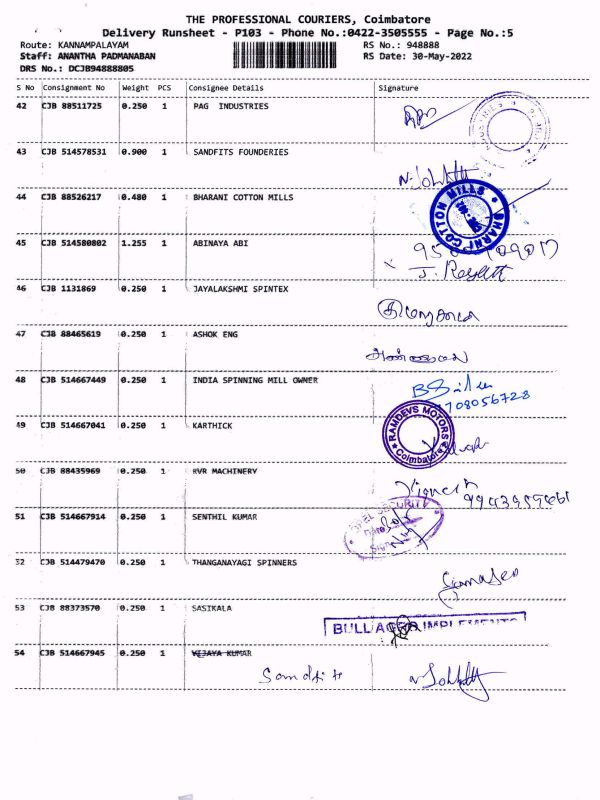 THE PROFESSIONAL COURIERS, Coimbatore
Delivery Runsheet - P103 - Phone No.:0422-3505555 - Page No.:5
Route: KANNAMPALAYAM RS No.: 948888
Staff: ANANTHA PADMANABAN RS Date: 30-May-2022
DRS No.: DCJB94888805
S No Consignment No Weight PCS Consignee Details Signature
42 CJB 88511725 0.250 1 PAG INDUSTRIES
43 CJB 514578531 0.900 1 SANDFITS FOUNDERIES
44 CJB 88526217 0.480 1 BHARANI COTTON MILLS
BHARNI COTTON MILLS
45 CJB 514580802 1.255 1 ABINAYA ABI
46 CJB 1131869 0.250 1 JAYALAKSHMI SPINTEX
47 CJB 88465619 0.250 1 ASHOK ENG
48 CJB 514667449 0.250 1 INDIA SPINNING MILL OWNER
49 CJB 514667041 0.250 1 KARTHICK
RAMDEVS MOTORS
Coimbatore
50 CJB 88435969 0.250 1 RVR MACHINERY
51 CJB 514667914 0.250 1 SENTHIL KUMAR
SECURITY
52 CJB 514479470 0.250 1 THANGANAYAGI SPINNERS
53 CJB 88373570 0.250 1 SASIKALA
IMPLEMENTS
54 CJB 514667945 0.250 1 VIJAYA KUMAR